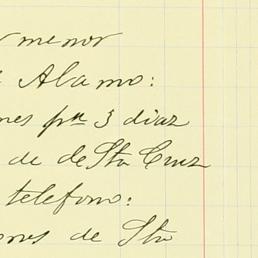 menor
Alamo:
nes pra 3 diaz
de de Sta Cruz
telefono:
ones de Sta